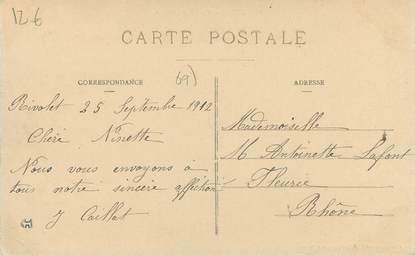 12-6
CARTE POSTALE
69)
CORRESPONDANCE
ADRESSE
Rivolet 25 Septembre 1912
Chère Ninette
Nous vous envoyons à
tous notre sincère affection
J Caillat
Mademoiselle
M Antoinette Lafont
Fleurie
Rhône